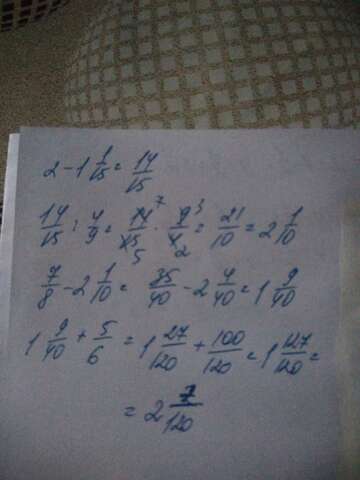 2 - 1 1/15 = 14/15
14/15 : 4/9 = 14/15 7 5 · 9/4 3 2 = 21/10 = 2 1/10
7/8 - 2 1/10 = 35/40 - 2 4/40 = 1 9/40
1 9/40 + 5/6 = 1 27/120 + 100/120 = 1 127/120 =
= 2 7/120